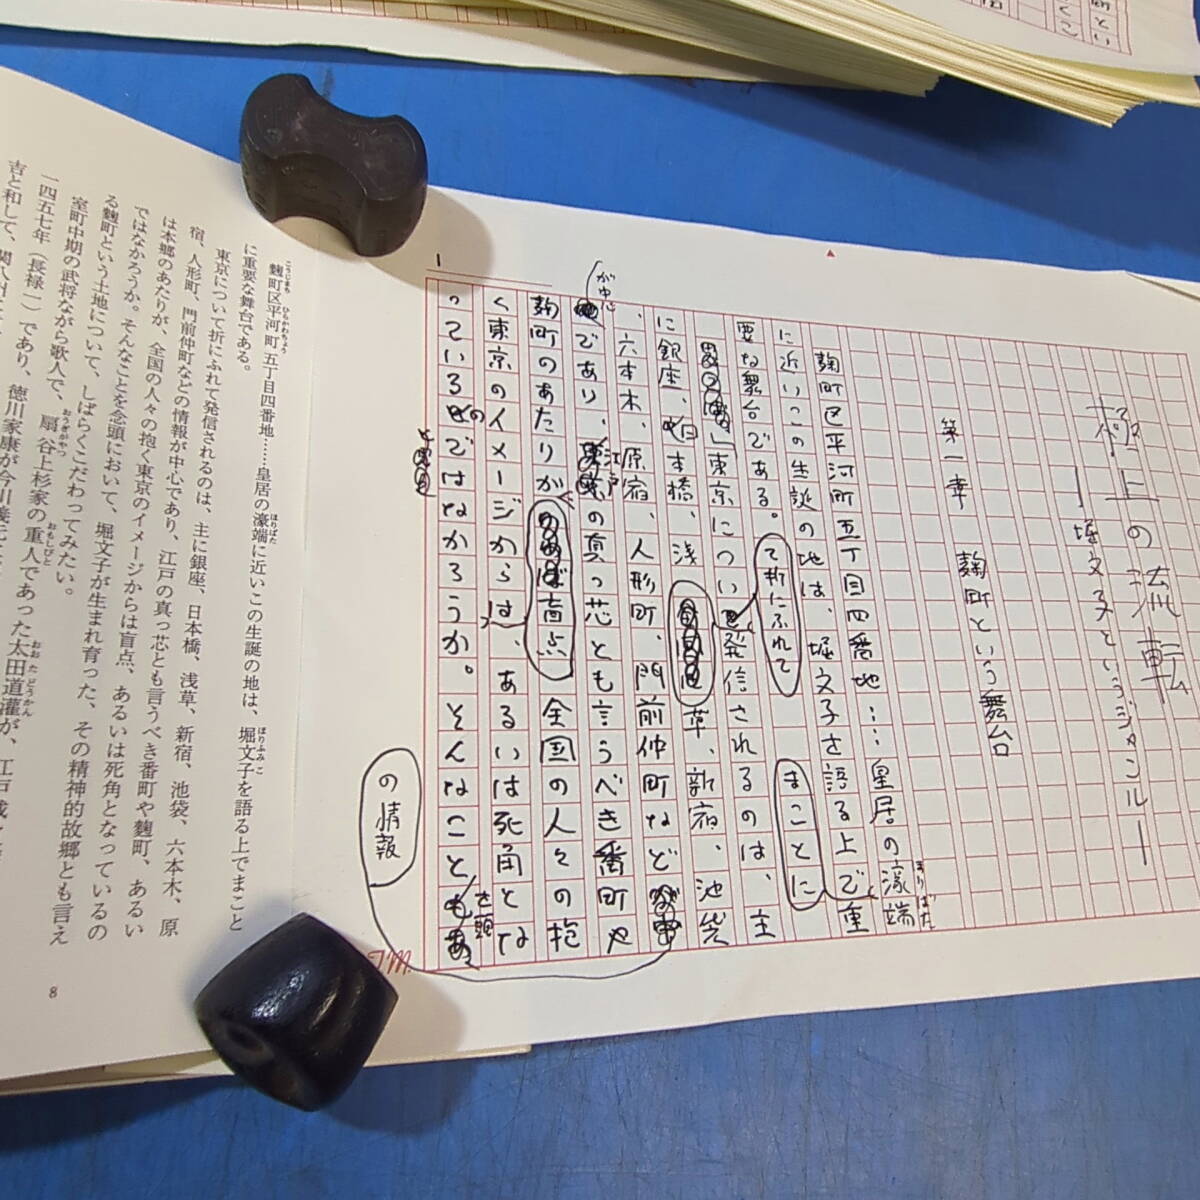 極上の流転
―堀文子というジャンル―
第一章 麹町という舞台
麹町区平河町五丁目四番地……皇居の濠端
ほりばた
に近いこの生誕の地は、堀文子を語る上で重
まことに
要な舞台である。
て折にふれて
東京につい 発信されるのは、主
に銀座、日本橋、浅草、新宿、池袋
、六本木、原宿、人形町、門前仲町など
の情報
が中心
であり、江戸の真っ芯とも言うべき番町や
麹町のあたりが 盲点 全国の人々の抱
く東京のイメージからは、あるいは死角とな
っているのではなかろうか。そんなことを
を念頭
1
T.M.
麹町区平河町五丁目四番地……皇居の濠端に近いこの生誕の地は、堀文子を語る上でまこと
こうじまち ひらかわちょう ほりばた ほりふみこ
に重要な舞台である。
東京について折にふれて発信されるのは、主に銀座、日本橋、浅草、新宿、池袋、六本木、原
宿、人形町、門前仲町などの情報が中心であり、江戸の真っ芯とも言うべき番町や麹町、あるい
は本郷のあたりが、全国の人々の抱く東京のイメージからは盲点、あるいは死角となっているの
ではなかろうか。そんなことを念頭において、堀文子が生まれ育った、その精神的故郷とも言え
る麹町という土地について、しばらくこだわってみたい。
室町中期の武将ながら歌人で、扇谷上杉家の重人であった太田道灌が、江戸城
おうぎがやつ おもしびと おおた どうかん
一四五七年（長禄一）であり、徳川家康が今川義元
吉と和して、関八州
8